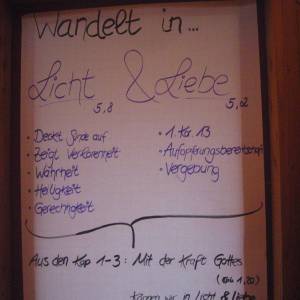 Wandelt in...
Licht & Liebe
5,8 5,02
• Deckt Sünde auf • 1. Kor. 13
• Zeigt Verlorenheit • Aufopferungsbereitschaft
• Wahrheit • Vergebung
• Heiligkeit
• Gerechtigkeit
Aus den Kap 1-3: Mit der Kraft Gottes
1,20)
können wir in Licht & Liebe